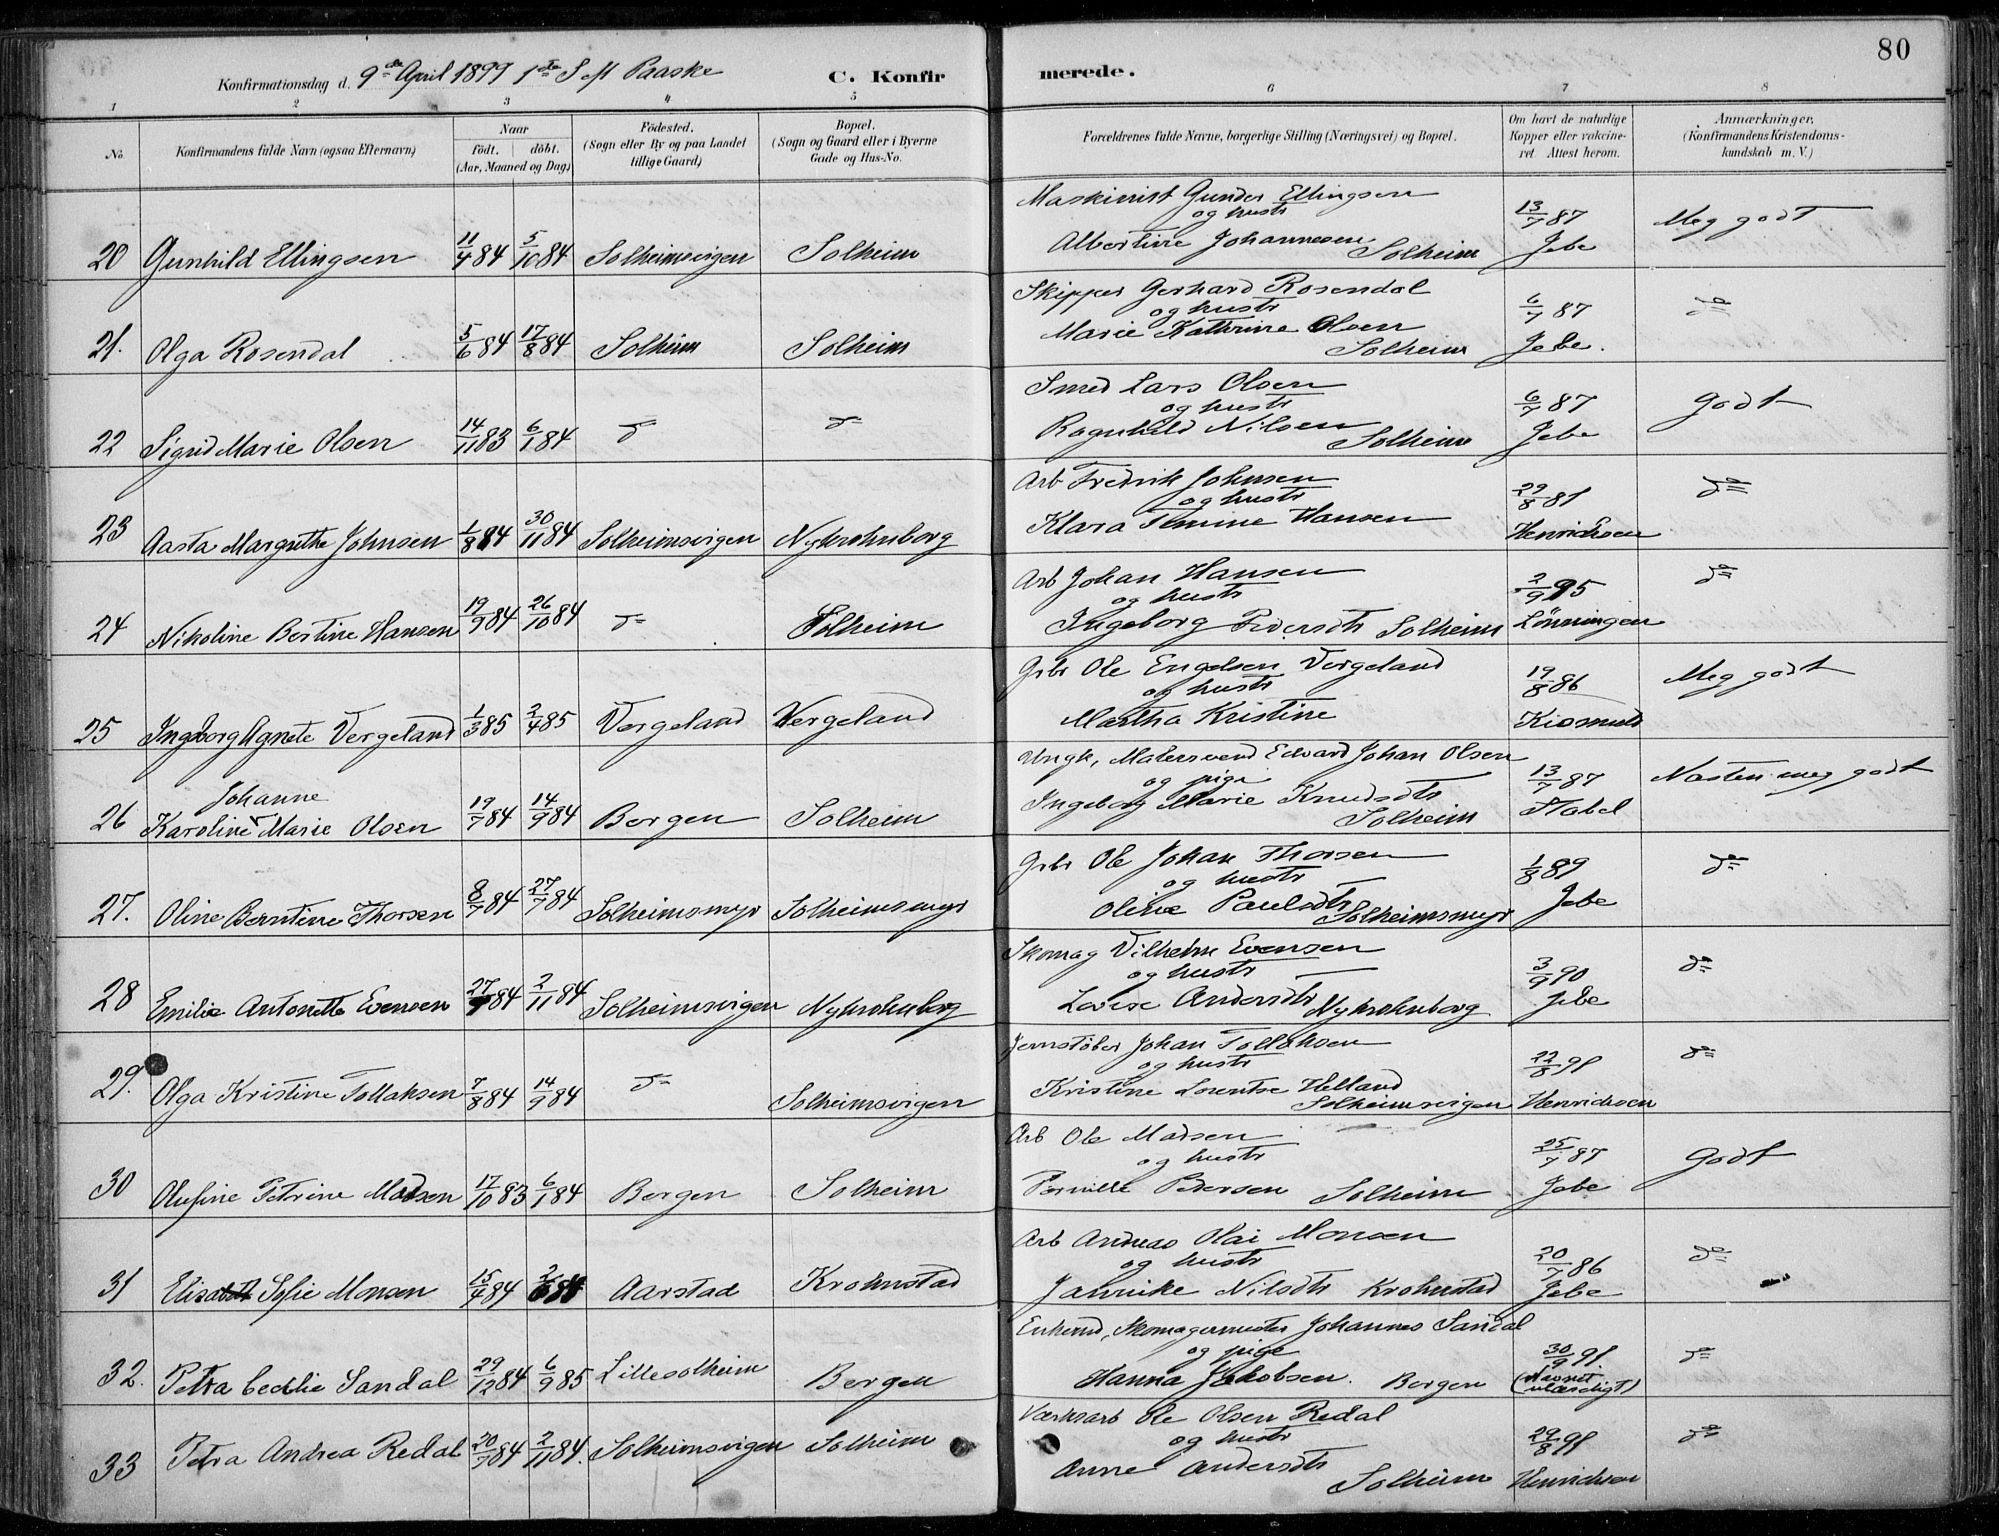 80
Konfirmationsdag d. 9de April 1899 1ste S eft Paaske C. Konfirmerede.
1 2 3 4 5 6 7 8
No. Konfirmandens fulde Navn (ogsaa Efternavn) Naar født. døbt. (Aar, Maaned og Dag) Fødested. (Sogn eller By og paa Landet tillige Gaard) Bopæl. (Sogn og Gaard eller i Byerne Gade og Hus-No. Forældrenes fulde Navne, borgerlige Stilling (Næringsvei) og Bopæl. Om havt de naturlige Kopper eller vakcineret. Attest herom. Anmærkninger. (Konfirmandens Kristendomskundskab m. V.)
20 Gunhild Ellingsen 11/4 84 5/10 84 Solheimsvigen Solheim Maskinist Gunder Ellingsen og hustr Albertine Johannesen Solheim 13/7 87 Jebe Meg godt
21. Olga Rosendal 5/6 84 17/8 84 Solheim Solheim Skipper Gerhard Rosendal og hustr Marie Kathrine Olsen Solheim 6/7 87 Jebe. do
22 Sigrid Marie Olsen 14/11 83 6/1 84 do do Smed Lars Olsen og hustr Ragnhild Nilsen Solheim 6/7 87 Jebe Godt
23 Aasta Margrethe Johnsen 1/8 84 30/11 84 Solheimsvigen Nykrohnborg Arb Fredrik Johnsen og hustr Klara Hansen 29/8 Henrichsen do
24 Nikoline Bertine Hansen 19/9 84 26/10 84 do Solheim Arb Johan Hansen og hustr Ingeborg Pedersdtr Solheim 2/9 95 Lönningen do
25 Ingeborg Agnete Vergeland 1/3 85 2/4 85 Vergeland Vergeland Gbr Ole Engelsen Vergeland og hustr Martha Kristine 19/8 86 Meg godt
26 Karoline Johanne Marie Olsen 19/7 84 14/9 84 Bergen Solheim Ungk, Malersvend Edvard Johan Olsen og pige Ingeborg Marie Knudsdtr Solheim 13/7 87 Stabel Næsten meg godt
27. Oline Berntine Thorsen 8/7 84 27/7 84 Solheimsmyr Solheimsmyr Gbr Ole Johan Thorsen og hustr Oline Paulsdtr Solheimsmyr 1/8 89 Jebe do
28 Emilie Antonette Evensen 27/ 84 2/11 84 Solheimsvigen Nykrohnborg Skomag Vilhelm Evensen og hustr Lovise Andersdtr Nykrohnborg 3/9 90 Jebe do
29. Olga Kristine Tollaksen 7/8 84 14/9 84 do Solheimsvigen Jernstøber Johan Tollaksen og hustr Kristine Lorentse Helland Solheimsvigen 22/8 91 Henrichsen do
30 Olufine Petrine Madsen 17/10 83 6/1 84 Bergen Solheim Arb Ole Madsen og hustr Pernille Pedersen Solheim 25/7 87 Jebe Godt
31 Elisabet Sofie Monsen 15/4 84 Aarstad Krohnstad Arb Andreas Olai Monsen og hustr Jannike Nilsdtr Krohnstad 20/7 86 Jebe do
32. Petra Cecilie Sandal 29/12 84 6/9 85 Lillesolheim Bergen Enkemd, Skomagermester Johannes Sandal og pige Hanna Jakobsen. Bergen 30/9 91 (Navnet ulæseligt) do
33 Petra Andrea Redal 20/7 84 2/11 84. Solheimsvigen Solheim Værksarb Ole Olsen Redal og hustr Anne Andersdtr Solheim 29/8 91 Henrichsen do